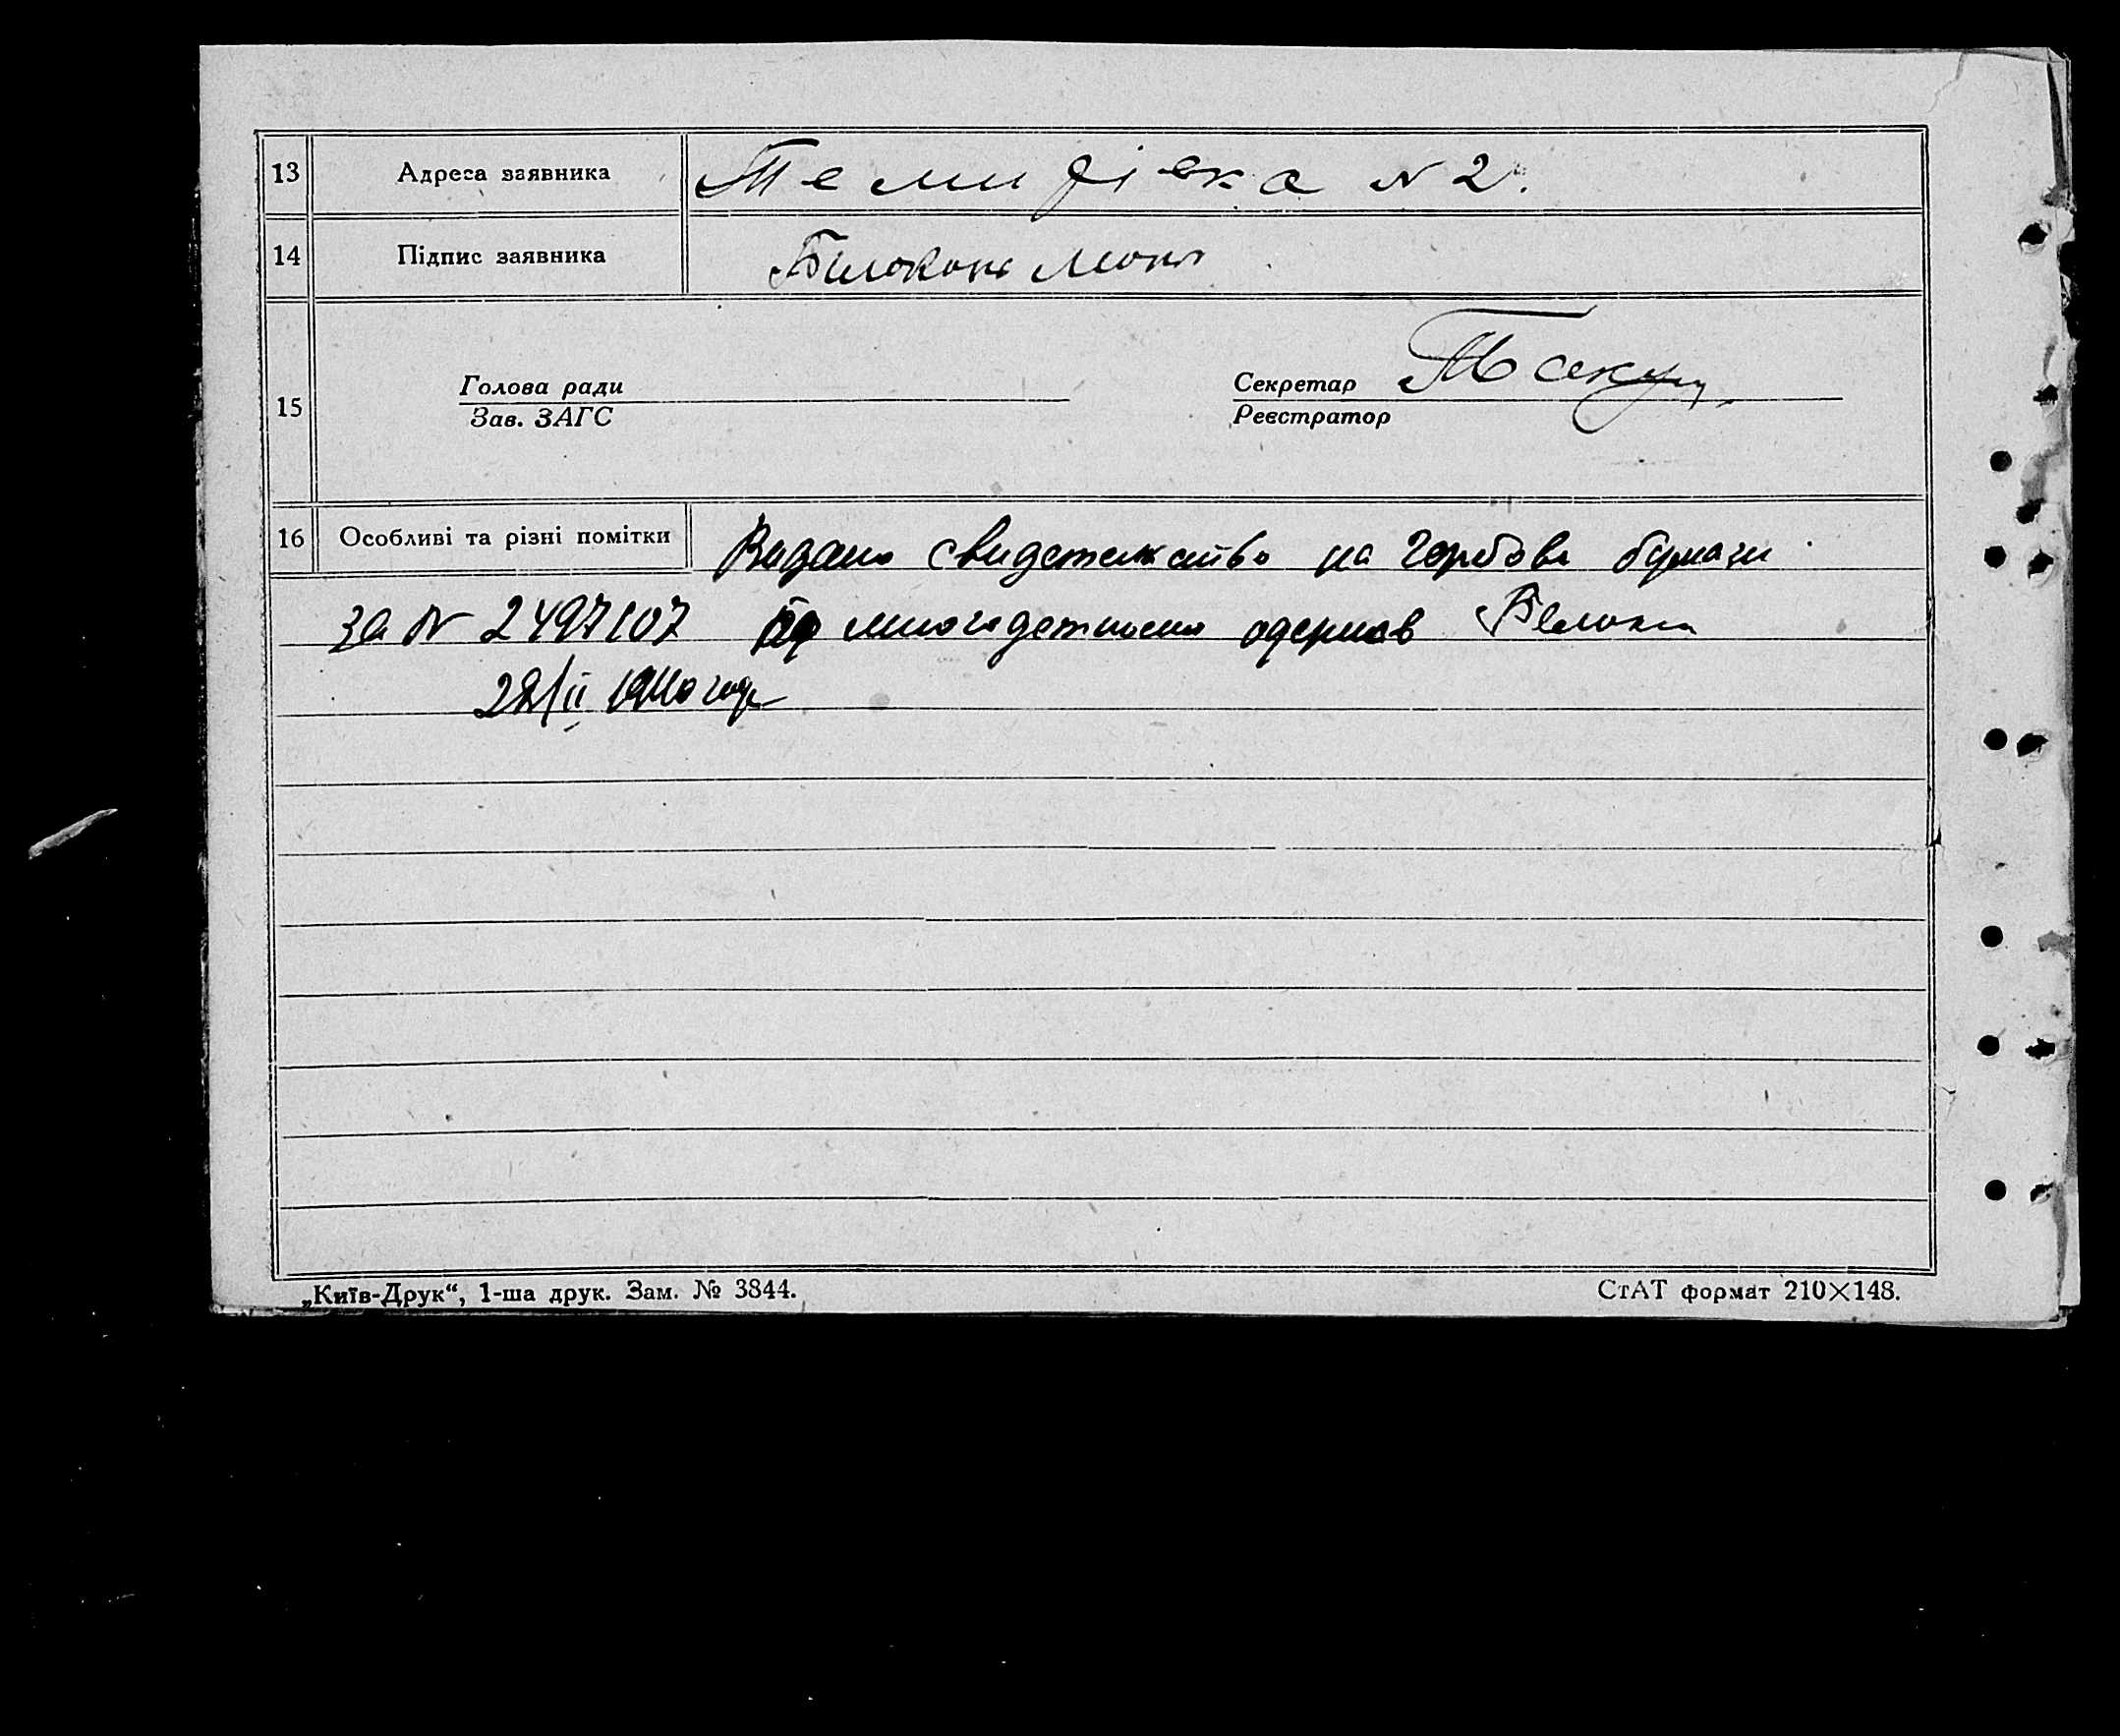 13 Адреса заявника Темирівка N 2.
14 Підпис заявника Білоконь
15 Голова ради
Зав. ЗАГС
Секретар
Реєстратор
16 Особливі та різні помітки Видано свидетельство на гербове бумаги
за N 2497107 многодетност одержав
28/II 1940 году
„Київ-Друк“, 1-ша друк. Зам. № 3844.
СтАТ формат 210×148.